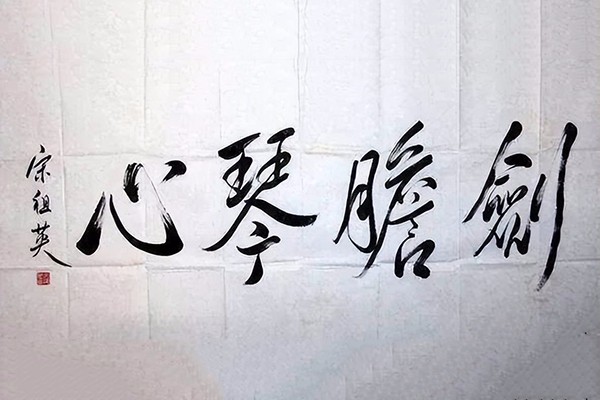 劍膽琴心
宋祖英